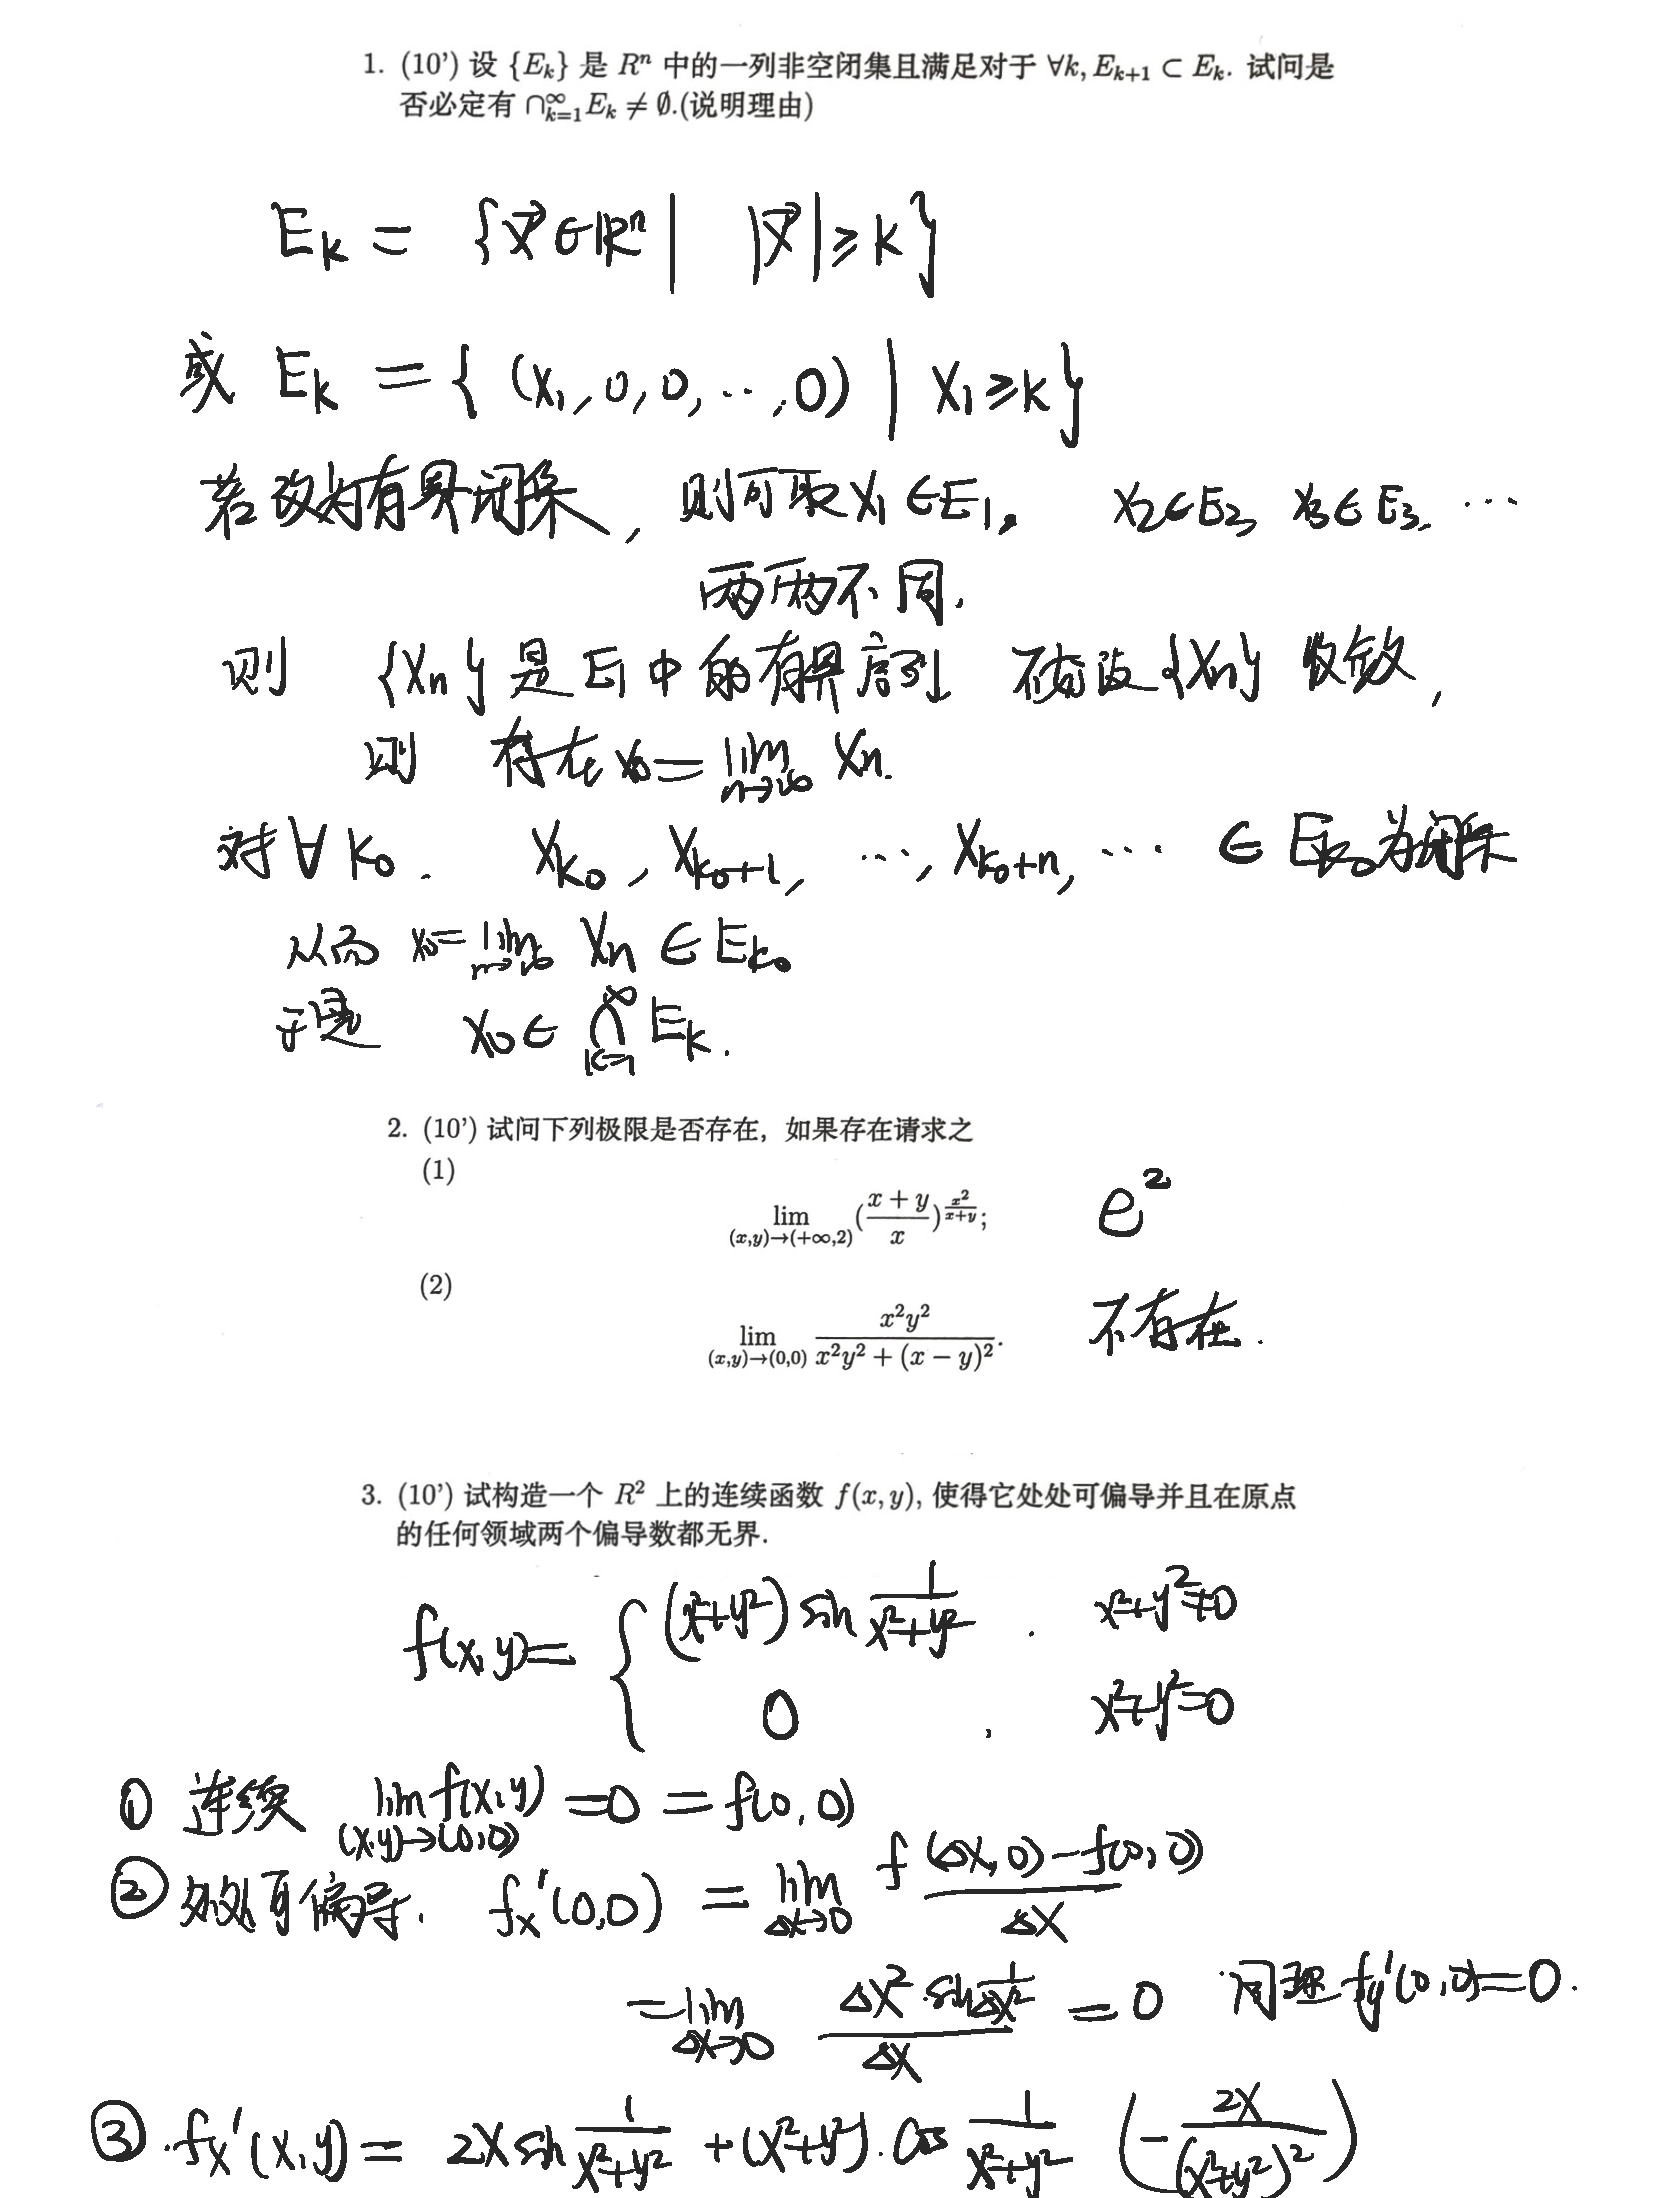 1. (10') 设 {E_k} 是 R^n 中的一列非空闭集且满足对于 ∀k, E_{k+1} ⊂ E_k. 试问是
否必定有 ∩_{k=1}^∞ E_k ≠ ∅.(说明理由)
E_k = {x⃗ ∈ R^n | |x⃗| ≥ k}
或 E_k = { (x_1, 0, 0, ..., 0) | x_1 ≥ k}
若改为有界闭集, 则可取 x_1 ∈ E_1, x_2 ∈ E_2, x_3 ∈ E_3, ...
两两不同.
则 {x_n} 是 E_1 中的有界序列 不妨设 {x_n} 收敛,
则 存在 x_0 = lim_{n→∞} x_n.
对 ∀ k_0. x_{k_0}, x_{k_0+1}, ..., x_{k_0+n}, ... ∈ E_{k_0} 为闭集
从而 x_0 = lim_{n→∞} x_n ∈ E_{k_0}
于是 x_0 ∈ ∩_{k=1}^∞ E_k.
2. (10') 试问下列极限是否存在，如果存在请求之
(1)
lim_{(x,y)→(+∞,2)} (\frac{x+y}{x})^{\frac{x^2}{x+y}}; e^2
(2)
lim_{(x,y)→(0,0)} \frac{x^2y^2}{x^2y^2+(x-y)^2}. 不存在.
3. (10') 试构造一个 R^2 上的连续函数 f(x,y), 使得它处处可偏导并且在原点
的任何领域两个偏导数都无界.
f(x,y) = { (x^2+y^2) sin \frac{1}{x^2+y^2}. x^2+y^2≠0
0, x^2+y^2=0
① 连续 lim_{(x,y)→(0,0)} f(x,y) = 0 = f(0,0)
② 处处可偏导. f_x'(0,0) = lim_{Δx→0} \frac{f(Δx,0)-f(0,0)}{Δx}
= lim_{Δx→0} \frac{Δx^2·sin\frac{1}{Δx^2}}{Δx} = 0 同理 f_y'(0,0)=0.
③. f_x'(x,y) = 2x sin \frac{1}{x^2+y^2} + (x^2+y^2)·cos \frac{1}{x^2+y^2} (-\frac{2x}{(x^2+y^2)^2})